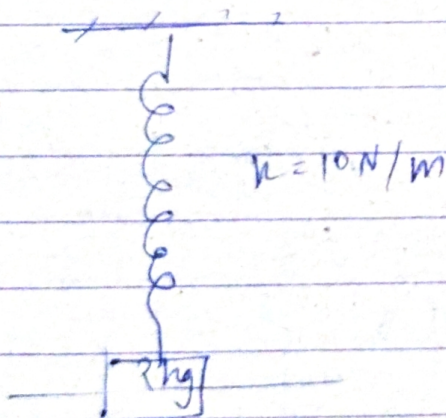 k = 10 N/m
2kg